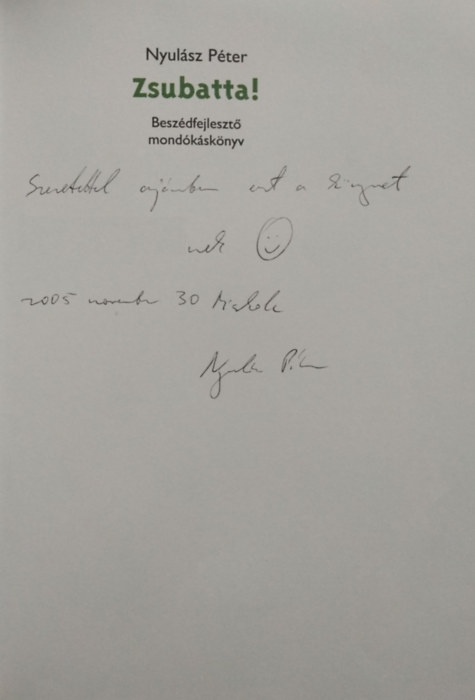 Nyulász Péter
Zsubatta!
Beszédfejlesztő
mondókáskönyv
Szeretettel ajánlom ezt a könyvet
nek
2005 november 30 Miskolc
Nyulász Péter